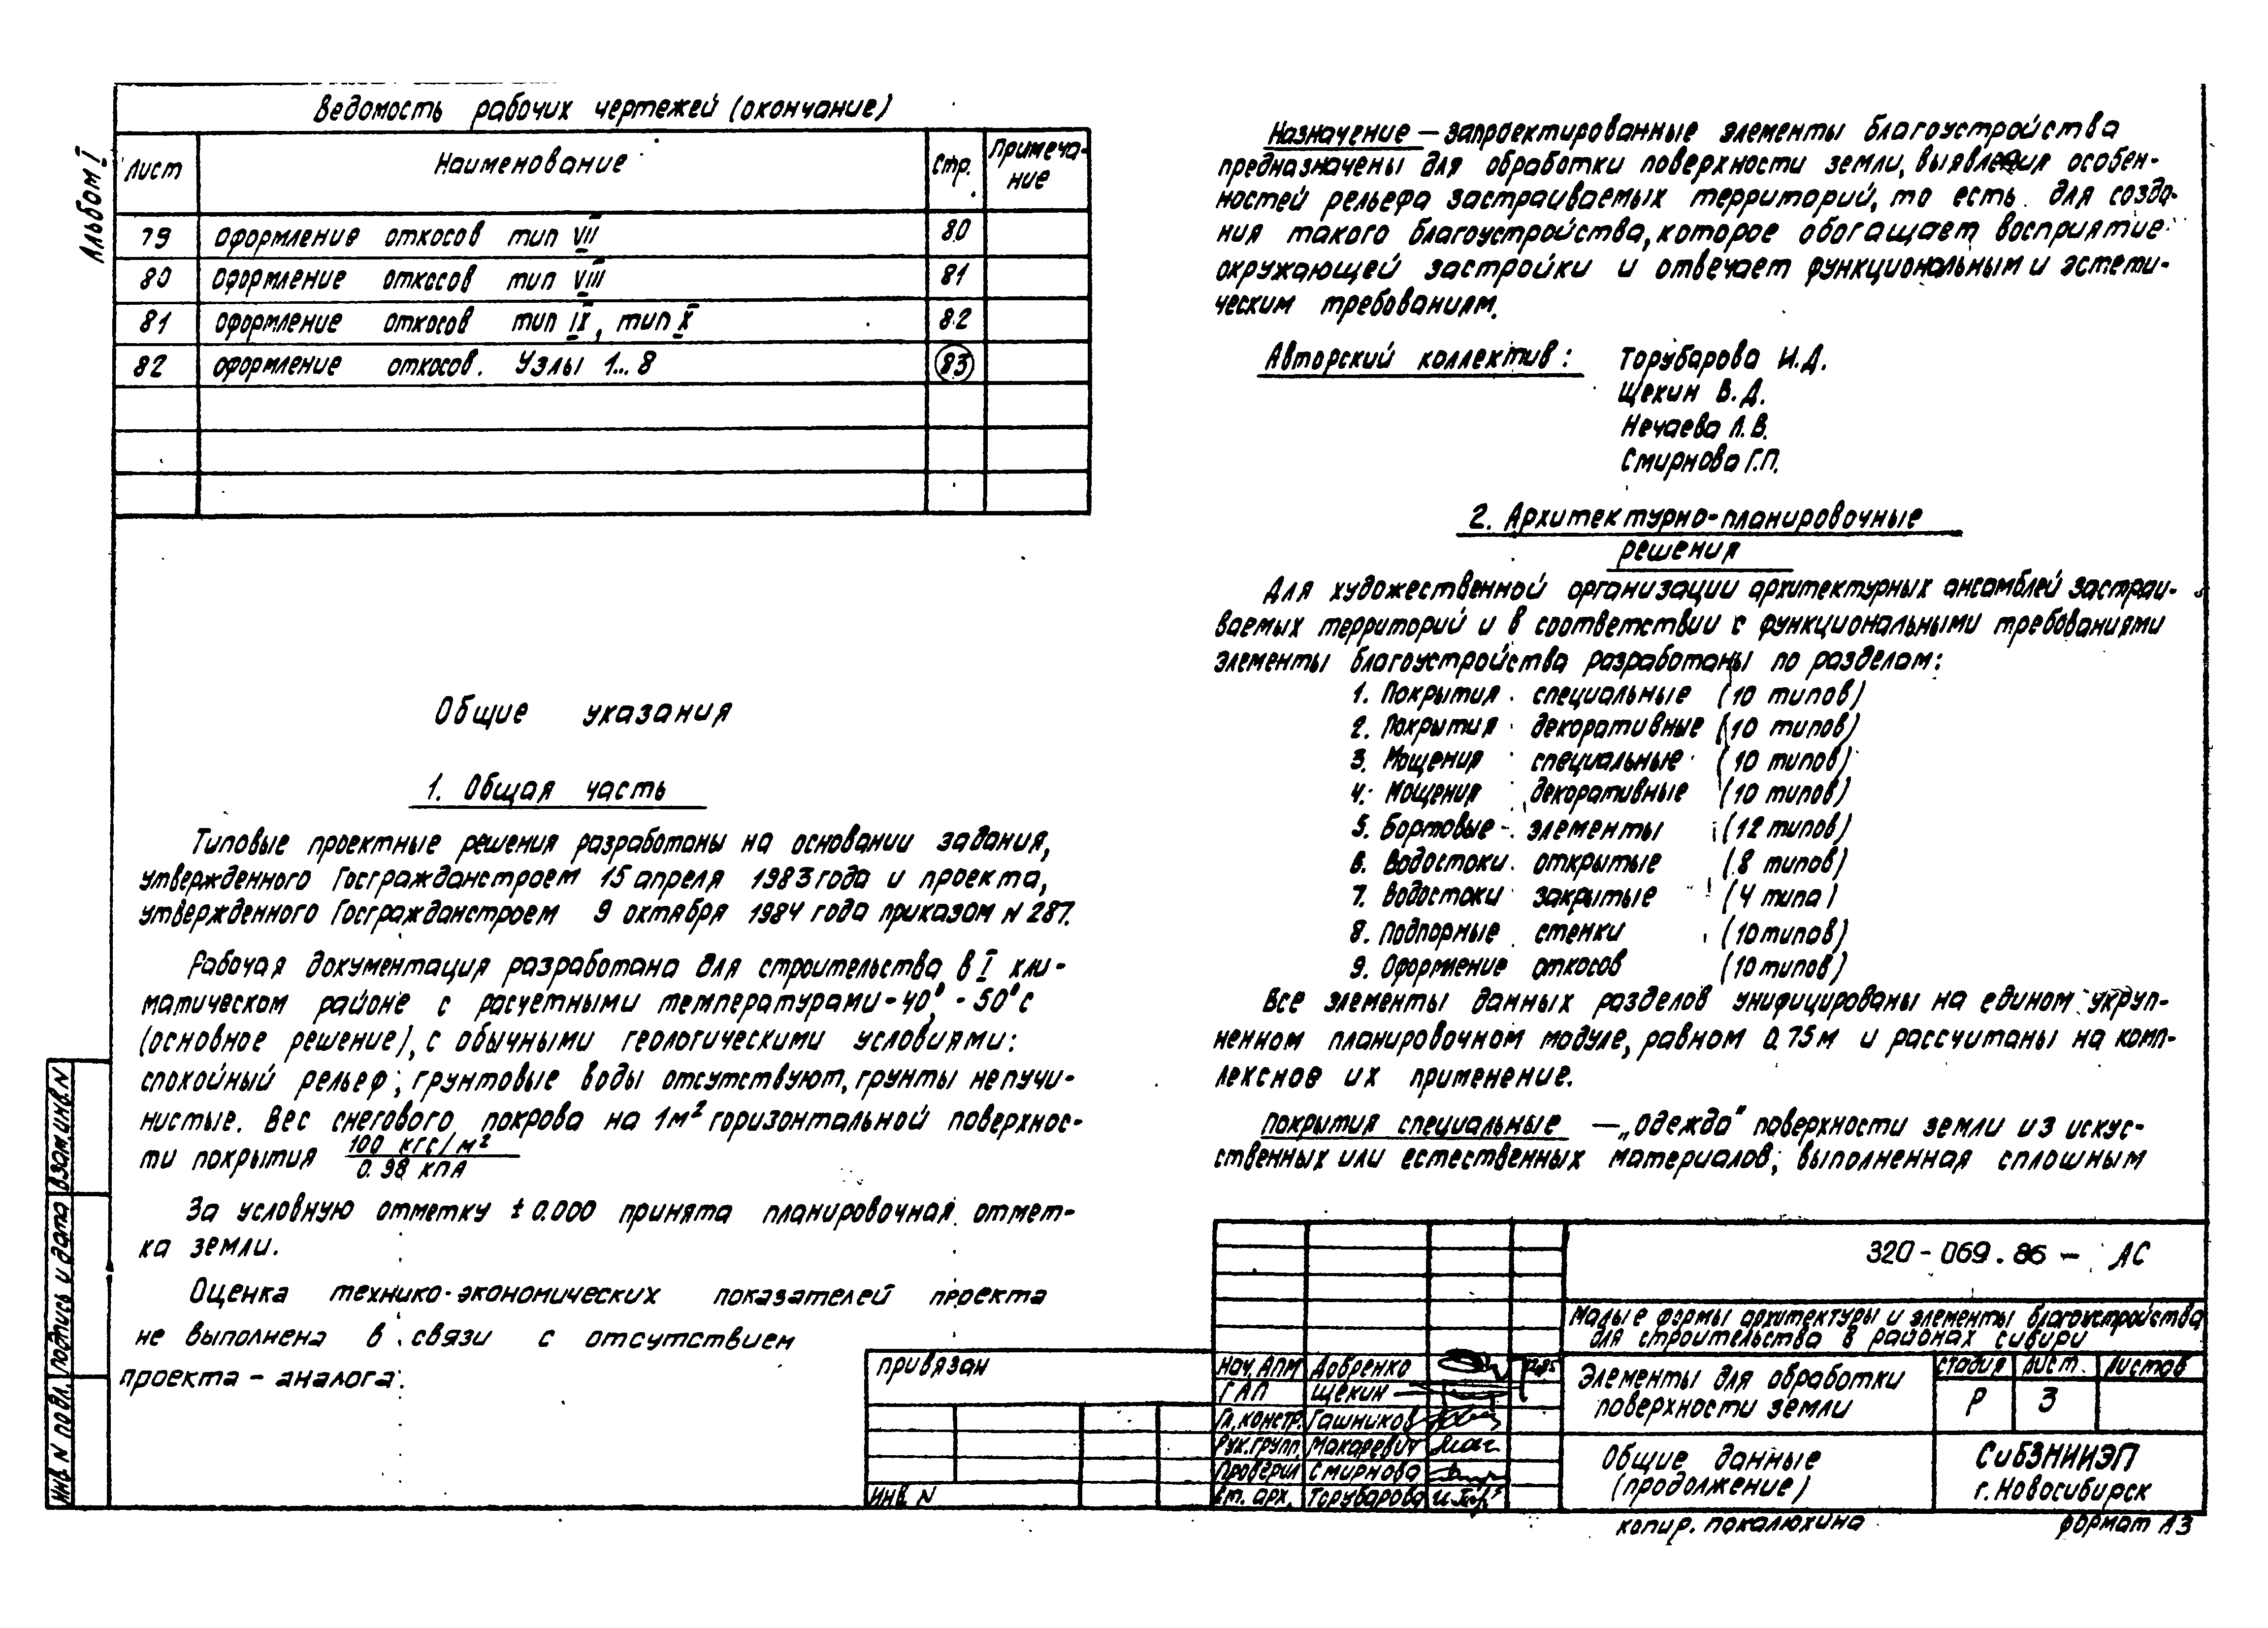 Альбом I
Ведомость рабочих чертежей (окончание)
Лист Наименование Стр. Примеча-
ние
79 Оформление откосов тип VII 80
80 Оформление откосов тип VIII 81
81 Оформление откосов тип IX, тип X 82
82 Оформление откосов. Узлы 1...8 83
Общие указания
1. Общая часть
Типовые проектные решения разработаны на основании задания,
утвержденного Госгражданстроем 15 апреля 1983 года и проекта,
утвержденного Госгражданстроем 9 октября 1984 года приказом N 287.
Рабочая документация разработана для строительства в I кли-
матическом районе с расчетными температурами -40°, -50°с
(основное решение), с обычными геологическими условиями:
спокойный рельеф; грунтовые воды отсутствуют, грунты непучи-
нистые. Вес снегового покрова на 1м² горизонтальной поверхнос-
ти покрытия 100 кгс/м²
0.98 кПа
За условную отметку ± 0.000 принята планировочная отмет-
ка земли.
Оценка технико-экономических показателей проекта
не выполнена в связи с отсутствием
проекта - аналога.
Назначение — запроектированные элементы благоустройства
предназначены для обработки поверхности земли, выявления особен-
ностей рельефа застраиваемых территорий, то есть для созда-
ния такого благоустройства, которое обогащает восприятие
окружающей застройки и отвечает функциональным и эстети-
ческим требованиям.
Авторский коллектив: Торубарова И.Д.
Щекин В.Д.
Нечаева Л.В.
Смирнова Г.П.
2. Архитектурно-планировочные
решения
Для художественной организации архитектурных ансамблей застраи-
ваемых территорий и в соответствии с функциональными требованиями
элементы благоустройства разработаны по разделам:
1. Покрытия специальные (10 типов)
2. Покрытия декоративные (10 типов)
3. Мощения специальные (10 типов)
4. Мощения декоративные (10 типов)
5. Бортовые элементы (12 типов)
6. Водостоки открытые (8 типов)
7. Водостоки закрытые (4 типа)
8. Подпорные стенки (10 типов)
9. Оформление откосов (10 типов)
Все элементы данных разделов унифицированы на едином укруп-
ненном планировочном модуле, равном 0.75 м и рассчитаны на комп-
лексное их применение.
Покрытия специальные — „одежда" поверхности земли из искус-
ственных или естественных материалов, выполненная сплошным
320-069.86 - АС
Малые формы архитектуры и элементы благоустройства
для строительства в районах Сибири
Нач. АПМ Добренко
ГАП Щекин
Гл. констр. Гашников
Рук. групп. Макаревич
Проверил Смирнова
Ст. арх. Торубарова
Элементы для обработки
поверхности земли
Стадия Лист Листов
Р 3
Общие данные
(продолжение)
СибЗНИИЭП
г. Новосибирск
Привязан
Инв. N
Взам. инв. N
Подпись и дата
Инв. N подл.
копир. Покалюхина
формат А3